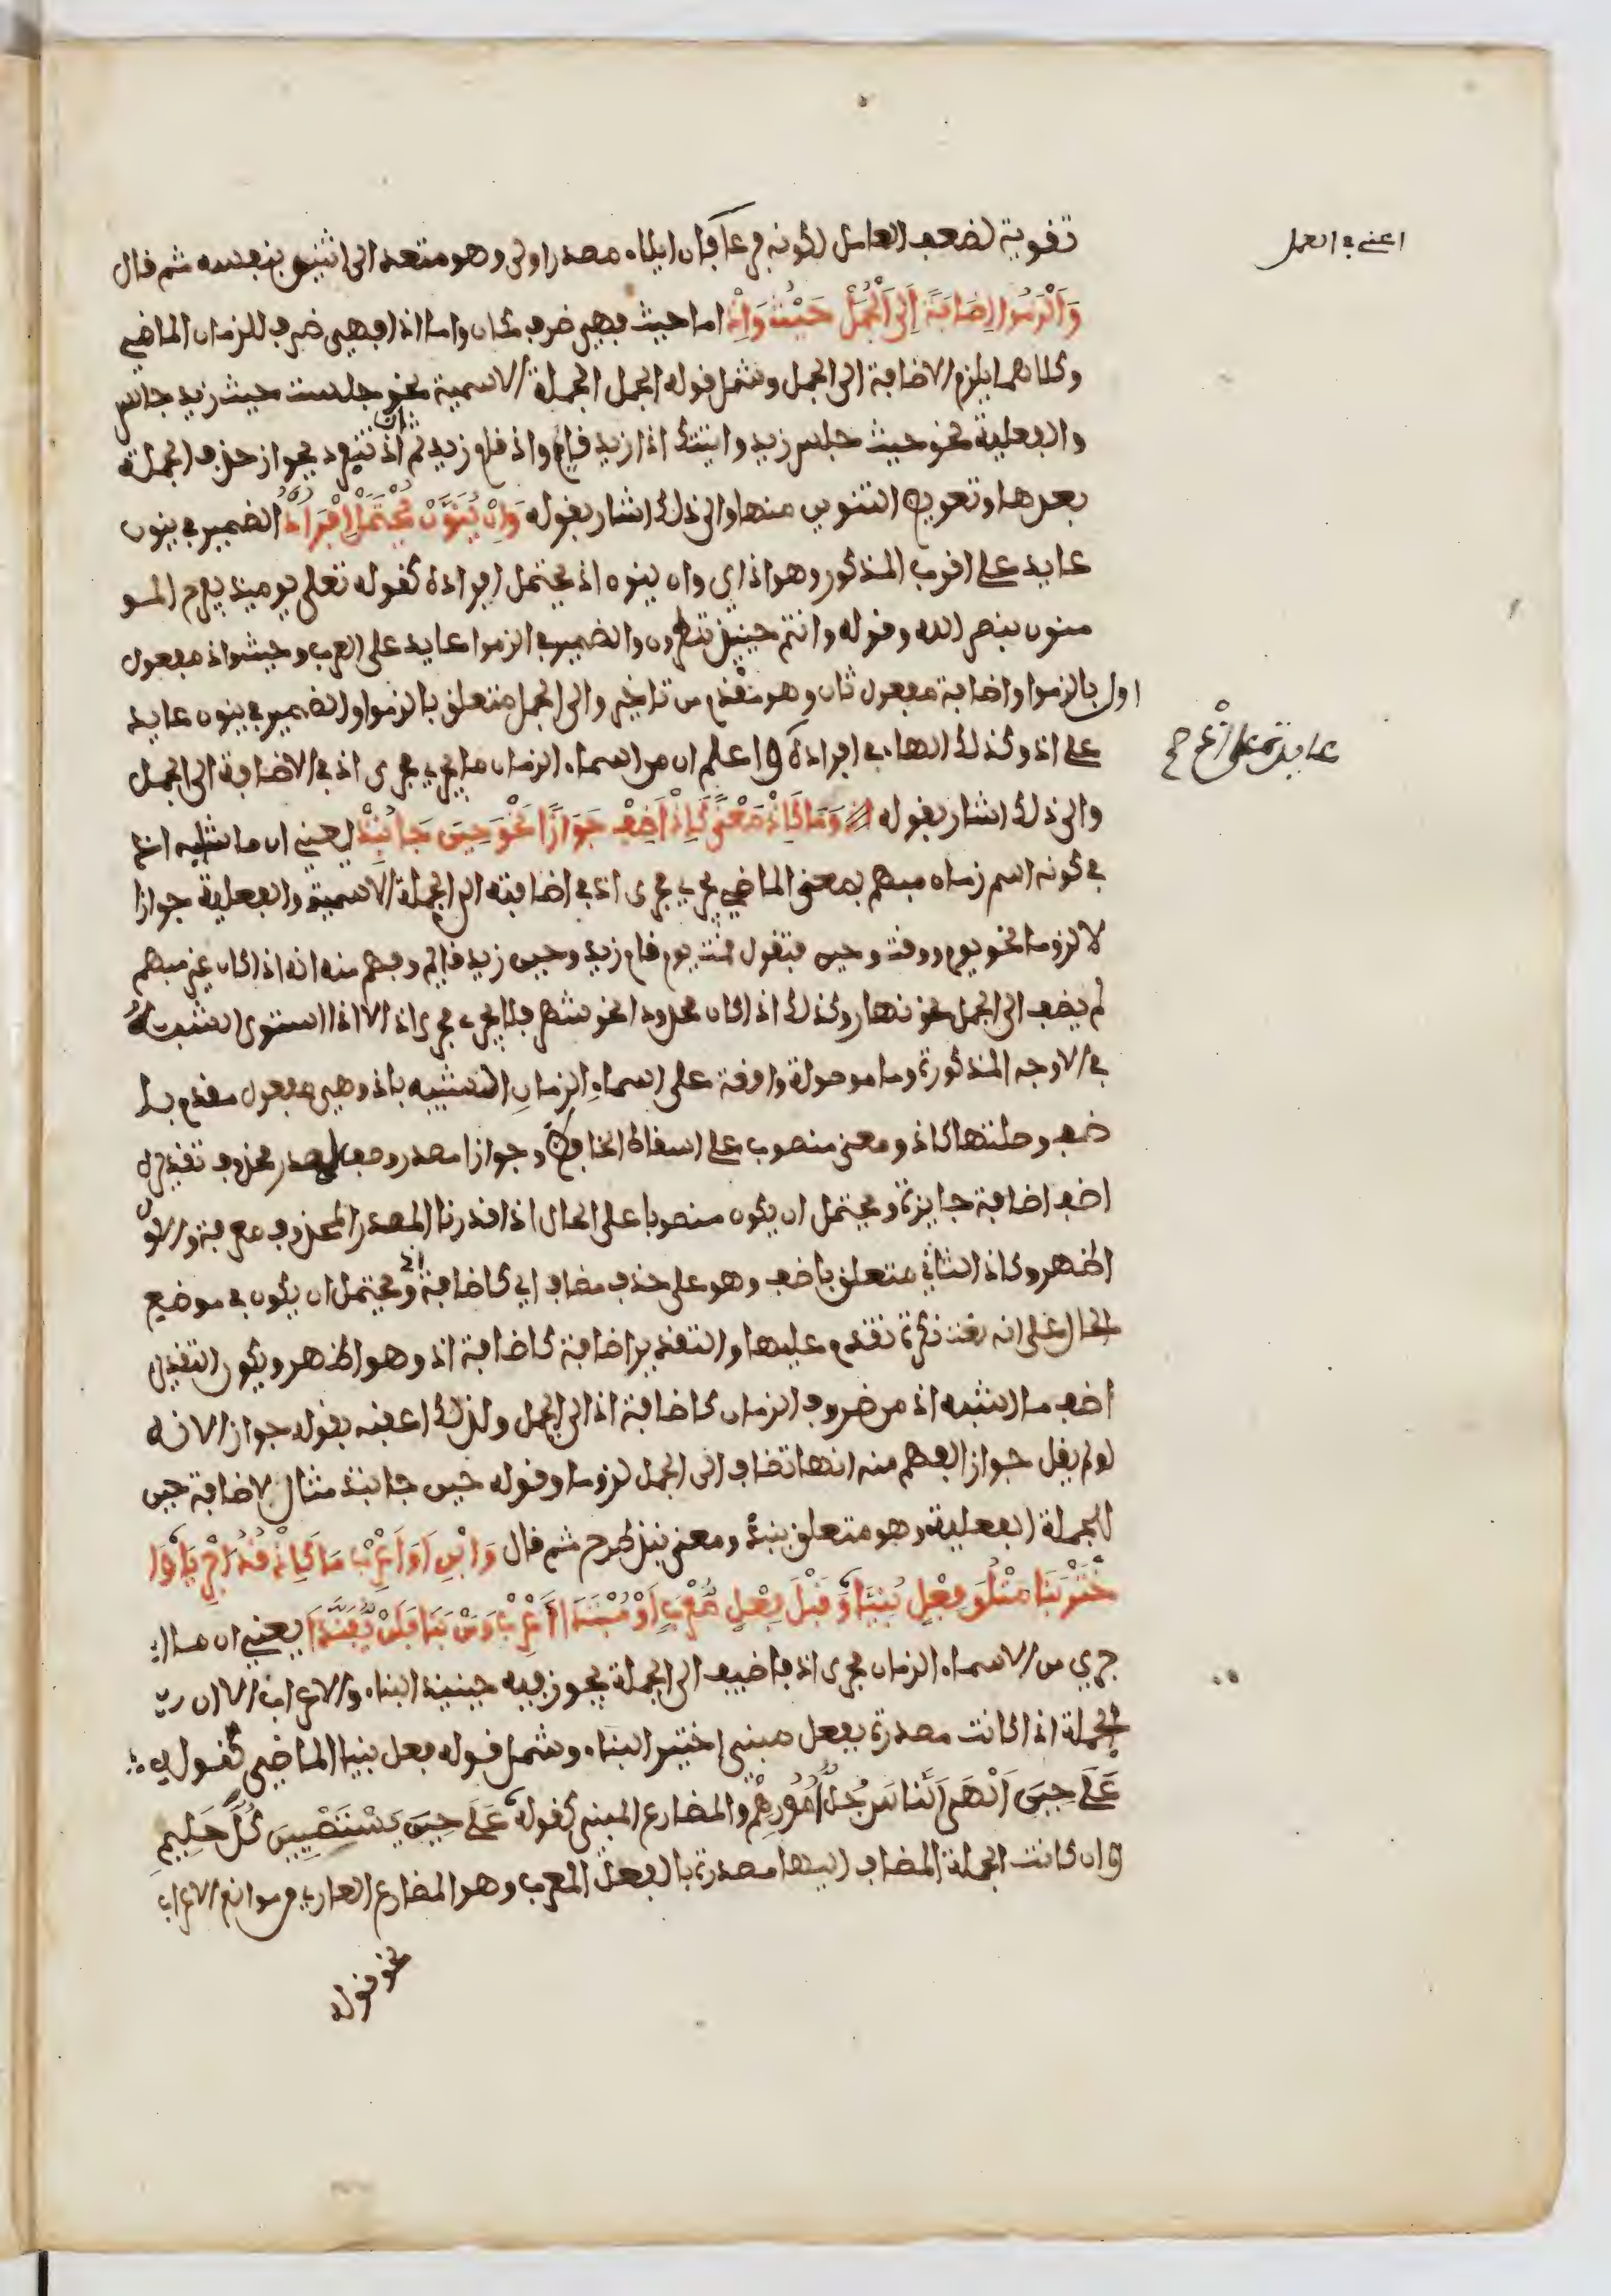 تقوية لضعف العامل لكونه فرعا فإن ايلاء مصدر اولى وهو متعد الى اثنين بنفسه ثم قال
اعني في العمل
وَأَلْزَمُوا إِضَافَةً إِلَى الْجُمَلْ حَيْثُ وَإِذْ اما حيث فهي ضرف مكان واما اذ فهي ضرف للزمان الماضي
وكلاهما يلزم الاضافة الى الجمل وشمل قوله الجمل الجملة الاسمية نحو جلست حيث زيد جالس
والفعلية نحو حيث جلس زيد واتيتك اذ زيد قايم واذ قام زيد ثم ان اذ تنفرد بجواز حذف الجملة
بعدها وتعويض التنوين منها والى ذلك اشار بقوله وَإِنْ يُنَوَّنْ يُحْتَمَلْ إِفْرَادُ إِذْ الضمير في ينون
عايد على اقرب المذكور وهو اذ اي وان ينون اذ يحتمل افراده كقوله تعلى يوميذ يفرح المو
منون بنصر الله وقوله وانتم حينيذ تنظرون والضمير في الزموا عايد على العرب وحيث واذ مفعول
اول بالزموا واضافة مفعول ثان وهو مقدم من تاخير والى الجمل متعلق بالزموا والضمير في ينون عايد
على اذ وكذلك الهاء في افراده واعلم ان من اسماء الزمان ما يجري مجرى اذ في الاضافة الى الجمل
والى ذلك اشار بقوله وَمَا كَإِذْ مَعْنًى كَإِذْ أَضِفْ جَوَازًا نَحْوَ حِينَ جَا نُبِذْ يعني ان ما اشبه اذ
في كونه اسم زمان مبهم بمعنى الماضي يجري مجرى اذ في اضافته الى الجملة الاسمية والفعلية جوازا
لا لزوما نحو يوم ووقت وحين فتقول قمت يوم قام زيد وحين زيد قايم وفهم منه انه اذا كان غير مبهم
لم يضف الى الجمل نحو نهار وكذلك اذا كان محدودا نحو شهر فلا يجري مجرى اذ الا اذا استوى الشبه
في الاوجه المذكورة وما موصولة واقعة على اسماء الزمان الشبيه باذ وهي مفعول مقدم با
ضف وصلتها كاذ ومعنى منصوب على اسقاط الخافض وجوازا مصدر وصف لمصدر محذوف تقديره
اضف اضافة جايزة ويحتمل ان يكون منصوبا على الحال اذا قدرنا المصدر المحذوف معرفة والاول
اظهر وكاذ الثاني متعلق باضف وهو على حذف مضاف اي كاضافة اذ ويحتمل ان يكون في موضع
الحال على انه نعت نكرة تقدم عليها والتقدير اضافة كاضافة اذ وهو اظهر ويكون التقدير
اضف ما اشبه اذ من ضروف الزمان كاضافة اذ الى الجمل ولذلك اعقبه بقوله جواز الانه
لو لم يقل جوازا لفهم منه انها تضاف الى الجمل لزوما وقوله حين جا نبذ مثال لاضافة حين
للجملة الفعلية وهو متعلق بنبذ ومعنى نبذ طرح ثم قال وَابْنِ اَوَ اَعْرِبْ مَا كَإِذْ قَدُ اجْرِيَا وَا
خْتَرْ بِنَا مَتْلُوِّ فِعْلٍ بُنِيَا وَقَبْلَ فِعْلٍ مُعْرَبٍ أَوْ مُبْتَدَا أَعْرِبْ وَمَنْ بَنَا فَلَنْ يُفَنَّدَا يعني ان ما
جري من الاسماء الزمان مجرى اذ فاضيف الى الجملة يجوز فيه حينيذ البناء والاعراب الا ان
الجملة اذا كانت مصدرة بفعل مبني اختير البناء وشمل قوله فعل بنيا الماضي كقوله
عَلَى حِينَ أَلْهَى النَّاسَ جُلُّ أُمُورِهِمْ والمضارع المبني كقوله عَلَى حِينَ يَسْتَصْبِينَ كُلَّ حَلِيمِ
وان كانت الجملة المضاف اليها مصدرة بالفعل المعرب وهو المضارع العاري من موانع الاعراب
نحو قوله